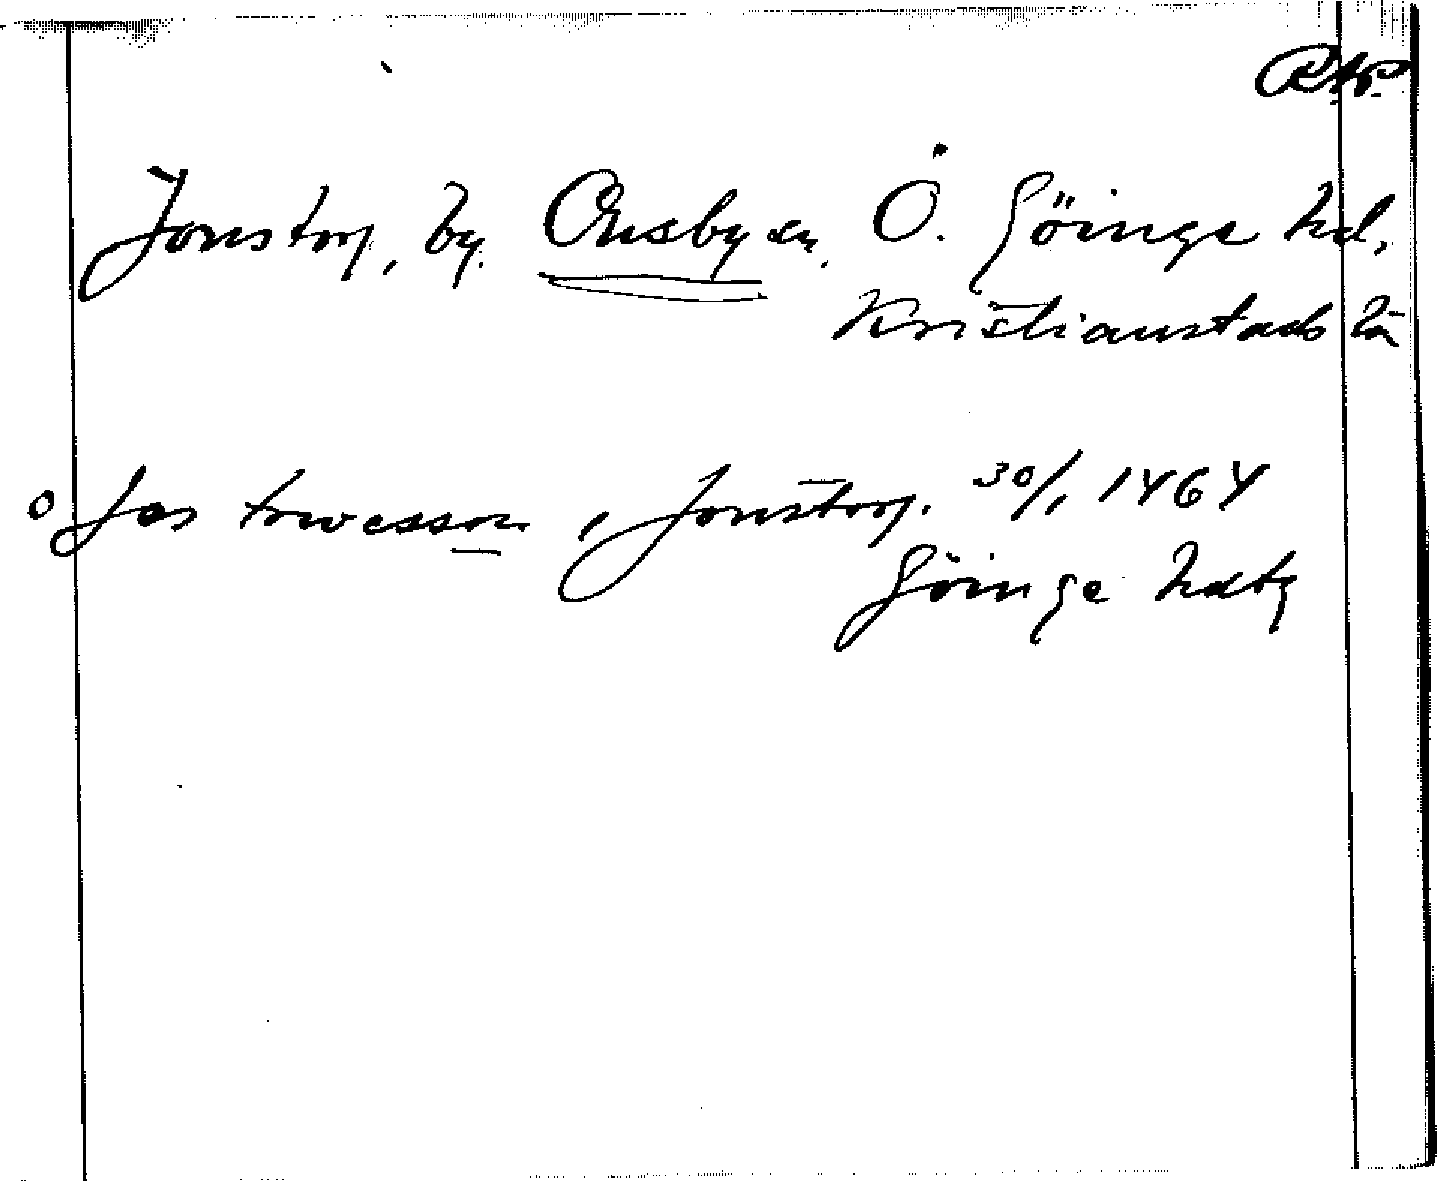 Jonstorp, by. Ousby sn. Ö. Göinge hd.
Kristianstads län
o Jes towesson, Jonstorp. 30/1 1464
Göinge hdtg